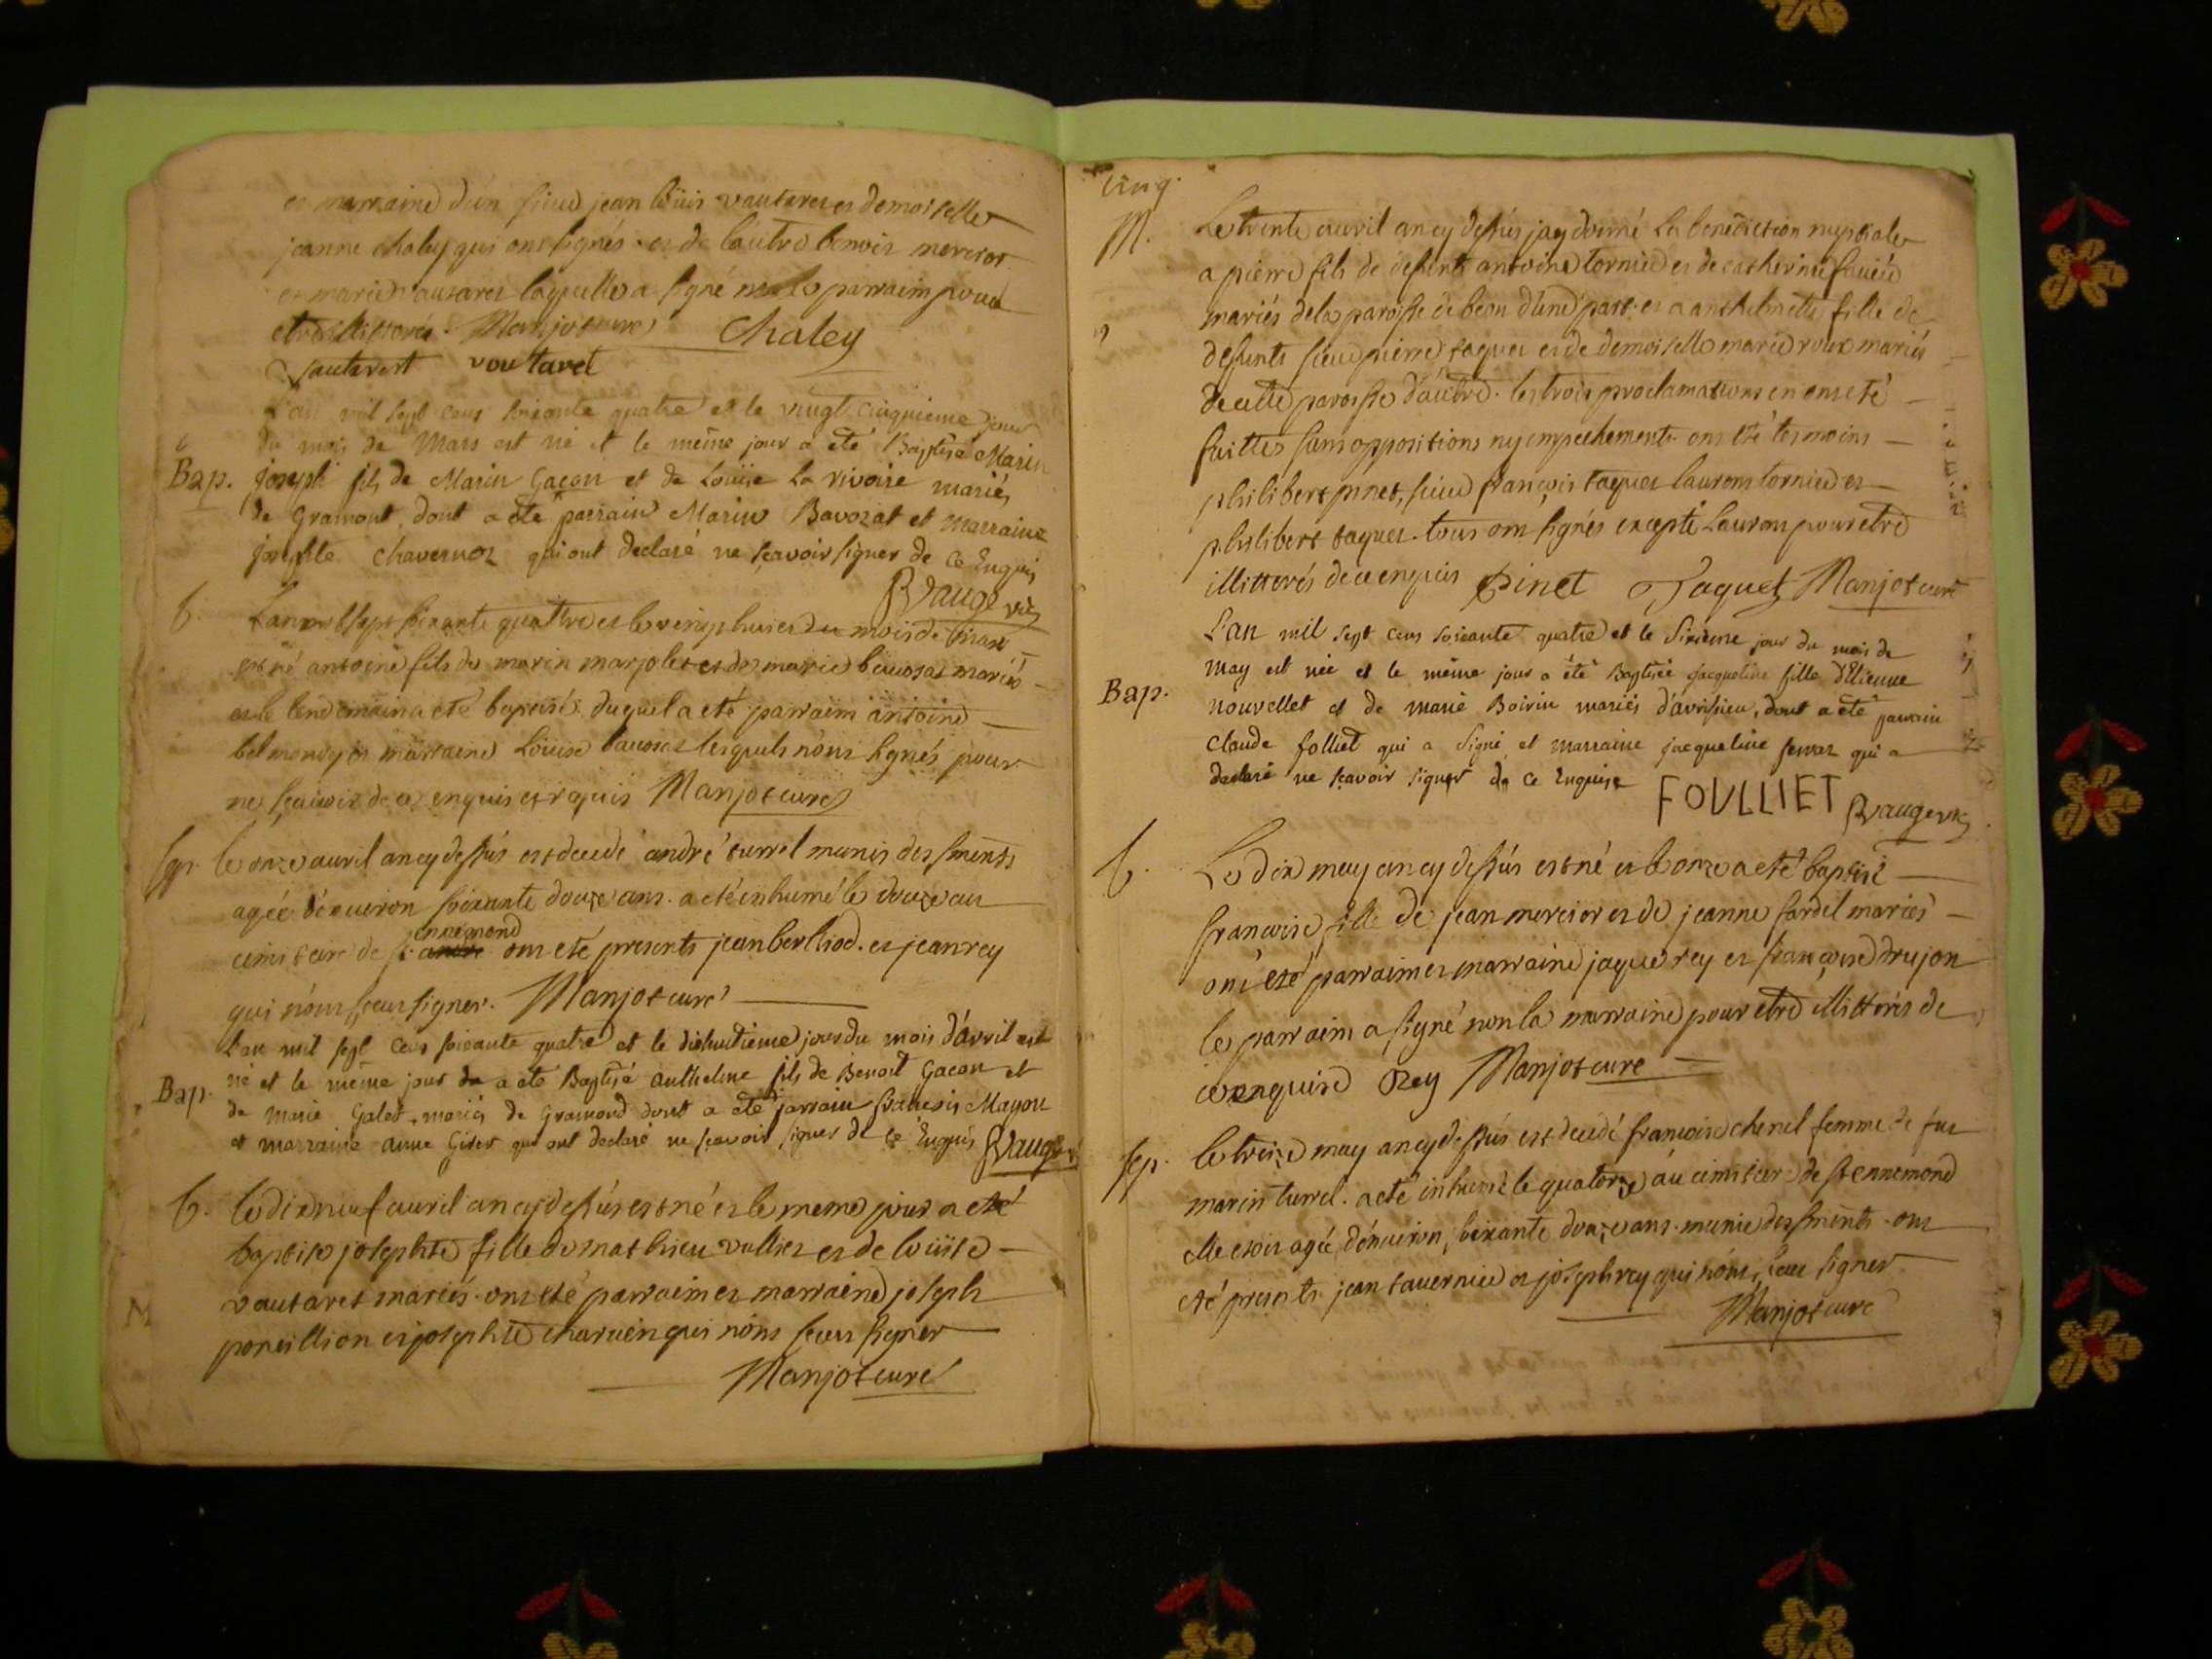 et marraine d'un sieur jean loüis vautaret et demoiselle
jeanne chaley qui ont signés et de lautre benoit mercier
et marie vautaret laquelle a signé non le parraim pour
etre illitterés Manjot curé Chaley
vautaret
L'an mil sept cens soixante quatre et le vingt cinquieme jour
du mois de Mars est né et le même jour a été Baptisé Marin
Bap. joseph fils de Marin Gacon et de Loüise La rivoire mariés
de Gramont, dont a été parrain Marin Bavozat et Marraine
josephte Chavernoz qui ont declaré ne sçavoir signer de ce Enquis
RVauge vic
b. Lan mil sept soixante quattre et le vint huit du mois de mars
est né antoine fils de marin marjolet et de marie bauosat mariés
et le lendemain a eté baptisé duquel a eté parraim antoine
belmondy et marraine Loüise bauosat lesquels nònt signés pour
ne sçauoir de ce enquis et requis Manjot curé
sep. le onze auril an cy dessus est decedé andré turrel munis des sments
agée d'enuiron soixante douze ans. a eté inhumé le douze au
ennemond
cimitiere de st andré ont eté presents jean berlliod. et jean rey
qui nònt sceu signer. Manjot curé
L'an mil sept cens soixante quatre et le dixhuitieme jour du mois d'avril est
né et le même jour da a été Baptisé anthelme fils de Benoit Gacon et
Bap. de Marie Galet, mariés de Gramond dont a été parrain françois Mayon
et marraine anne Giret qui ont declaré ne sçavoir signer de ce Enquis RVauge vic
b. le dixneuf auril an cy dessus est né et le meme jour a eté
baptise josephte fille de mathieu vallier et de loüise
vautaret mariés. ont eté parraim et marraine joseph
poncillion et josephte charuin qui nònt sceu signer
Manjot curé
cinq.
M. Le trente auril an cy dessus jay donné La benediction nuptiale
a pierre fils de defunt antoine tornier et de catherine
mariés de la paroisse de béon dune part. et a anthelmette fille de
defunts sieur pierre taquet et de demoiselle marie roux mariés
de cette paroisse d'autre. les trois proclamations en ont eté
faittes sans oppositions ny empechements. ont eté tesmoins
philibert pinet, sieur françois taquet laurent tornier et
philibert taquet. tous ont signés excepté Laurent pour etre
illitterés de ce enquis Pinet Taquet Manjot curé
L'an mil sept cens soixante quatre et le Sixieme jour du mois de
May est née et le même jour a été Baptisée jacqueline fille d'Etienne
Bap. nouvellet et de Marie Boivin mariés d'avrissieu, dont a été parrain
Claude folliet qui a Signé et Marraine jacqueline ferraz qui a
declaré ne sçavoir signer de ce Enquise FOULLIET RVauge vic
b. Le dix may an cy dessus est né et le onze a eté baptisé
francoise fille de jean mercier et de jeanne fardel mariés
ont eté parraim et marraine jaque rey et françoise drujon
le parraim a signé non la marraine pour etre illitterés de
ce enquise Rey Manjot curé
sep. le treize may an cy dessus est decedé francoise chenel femme de fut
marin turrel. a eté inhumé le quatorze au cimitiere de st ennemond
elle etoit agée d'enuiron soixante douze ans. munie des sments. ont
eté presents jean tauernier et joseph rey qui nònt sceu signer
Manjot curé